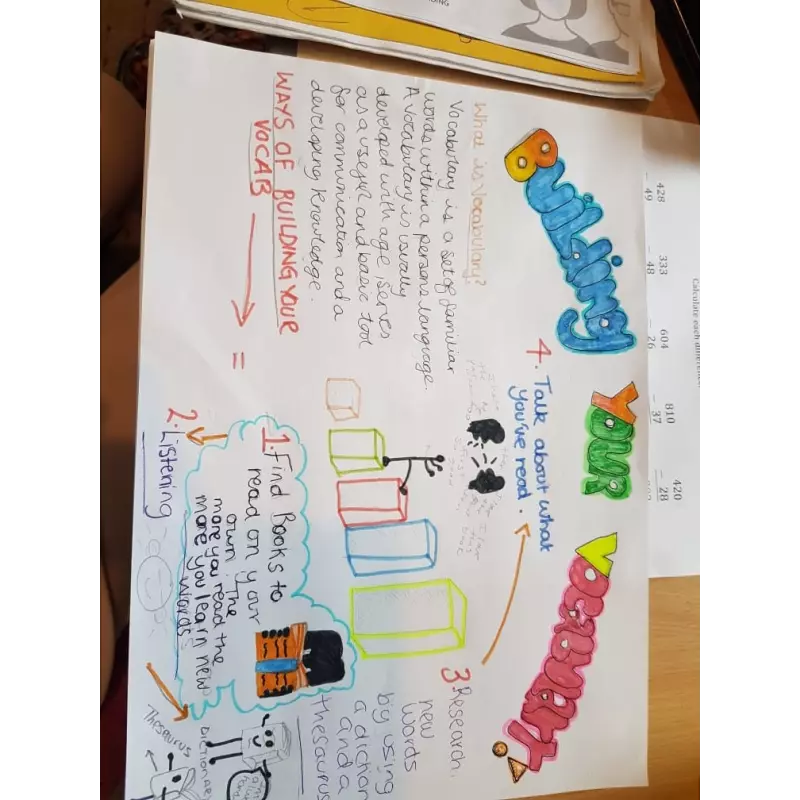 Building Your Vocabulary
What is Vocabulary?
Vocabulary is a set of familiar
words within a persons language.
A Vocabulary is usually
developed with age, serves
as a useful and basic tool
for communication and a
developing knowledge.
WAYS OF BUILDING YOUR
VOCAB =
1. Find Books to
read on your
own. The
more you read the
more you learn new
words
2. Listening
3. Research
new
words
by using
a diction
and a
thesaurus
4. Talk about what
you've read.
Dictionary
Thesaurus
Calculate each differen
428
- 49
333
- 48
604
- 26
810
- 37
420
- 28